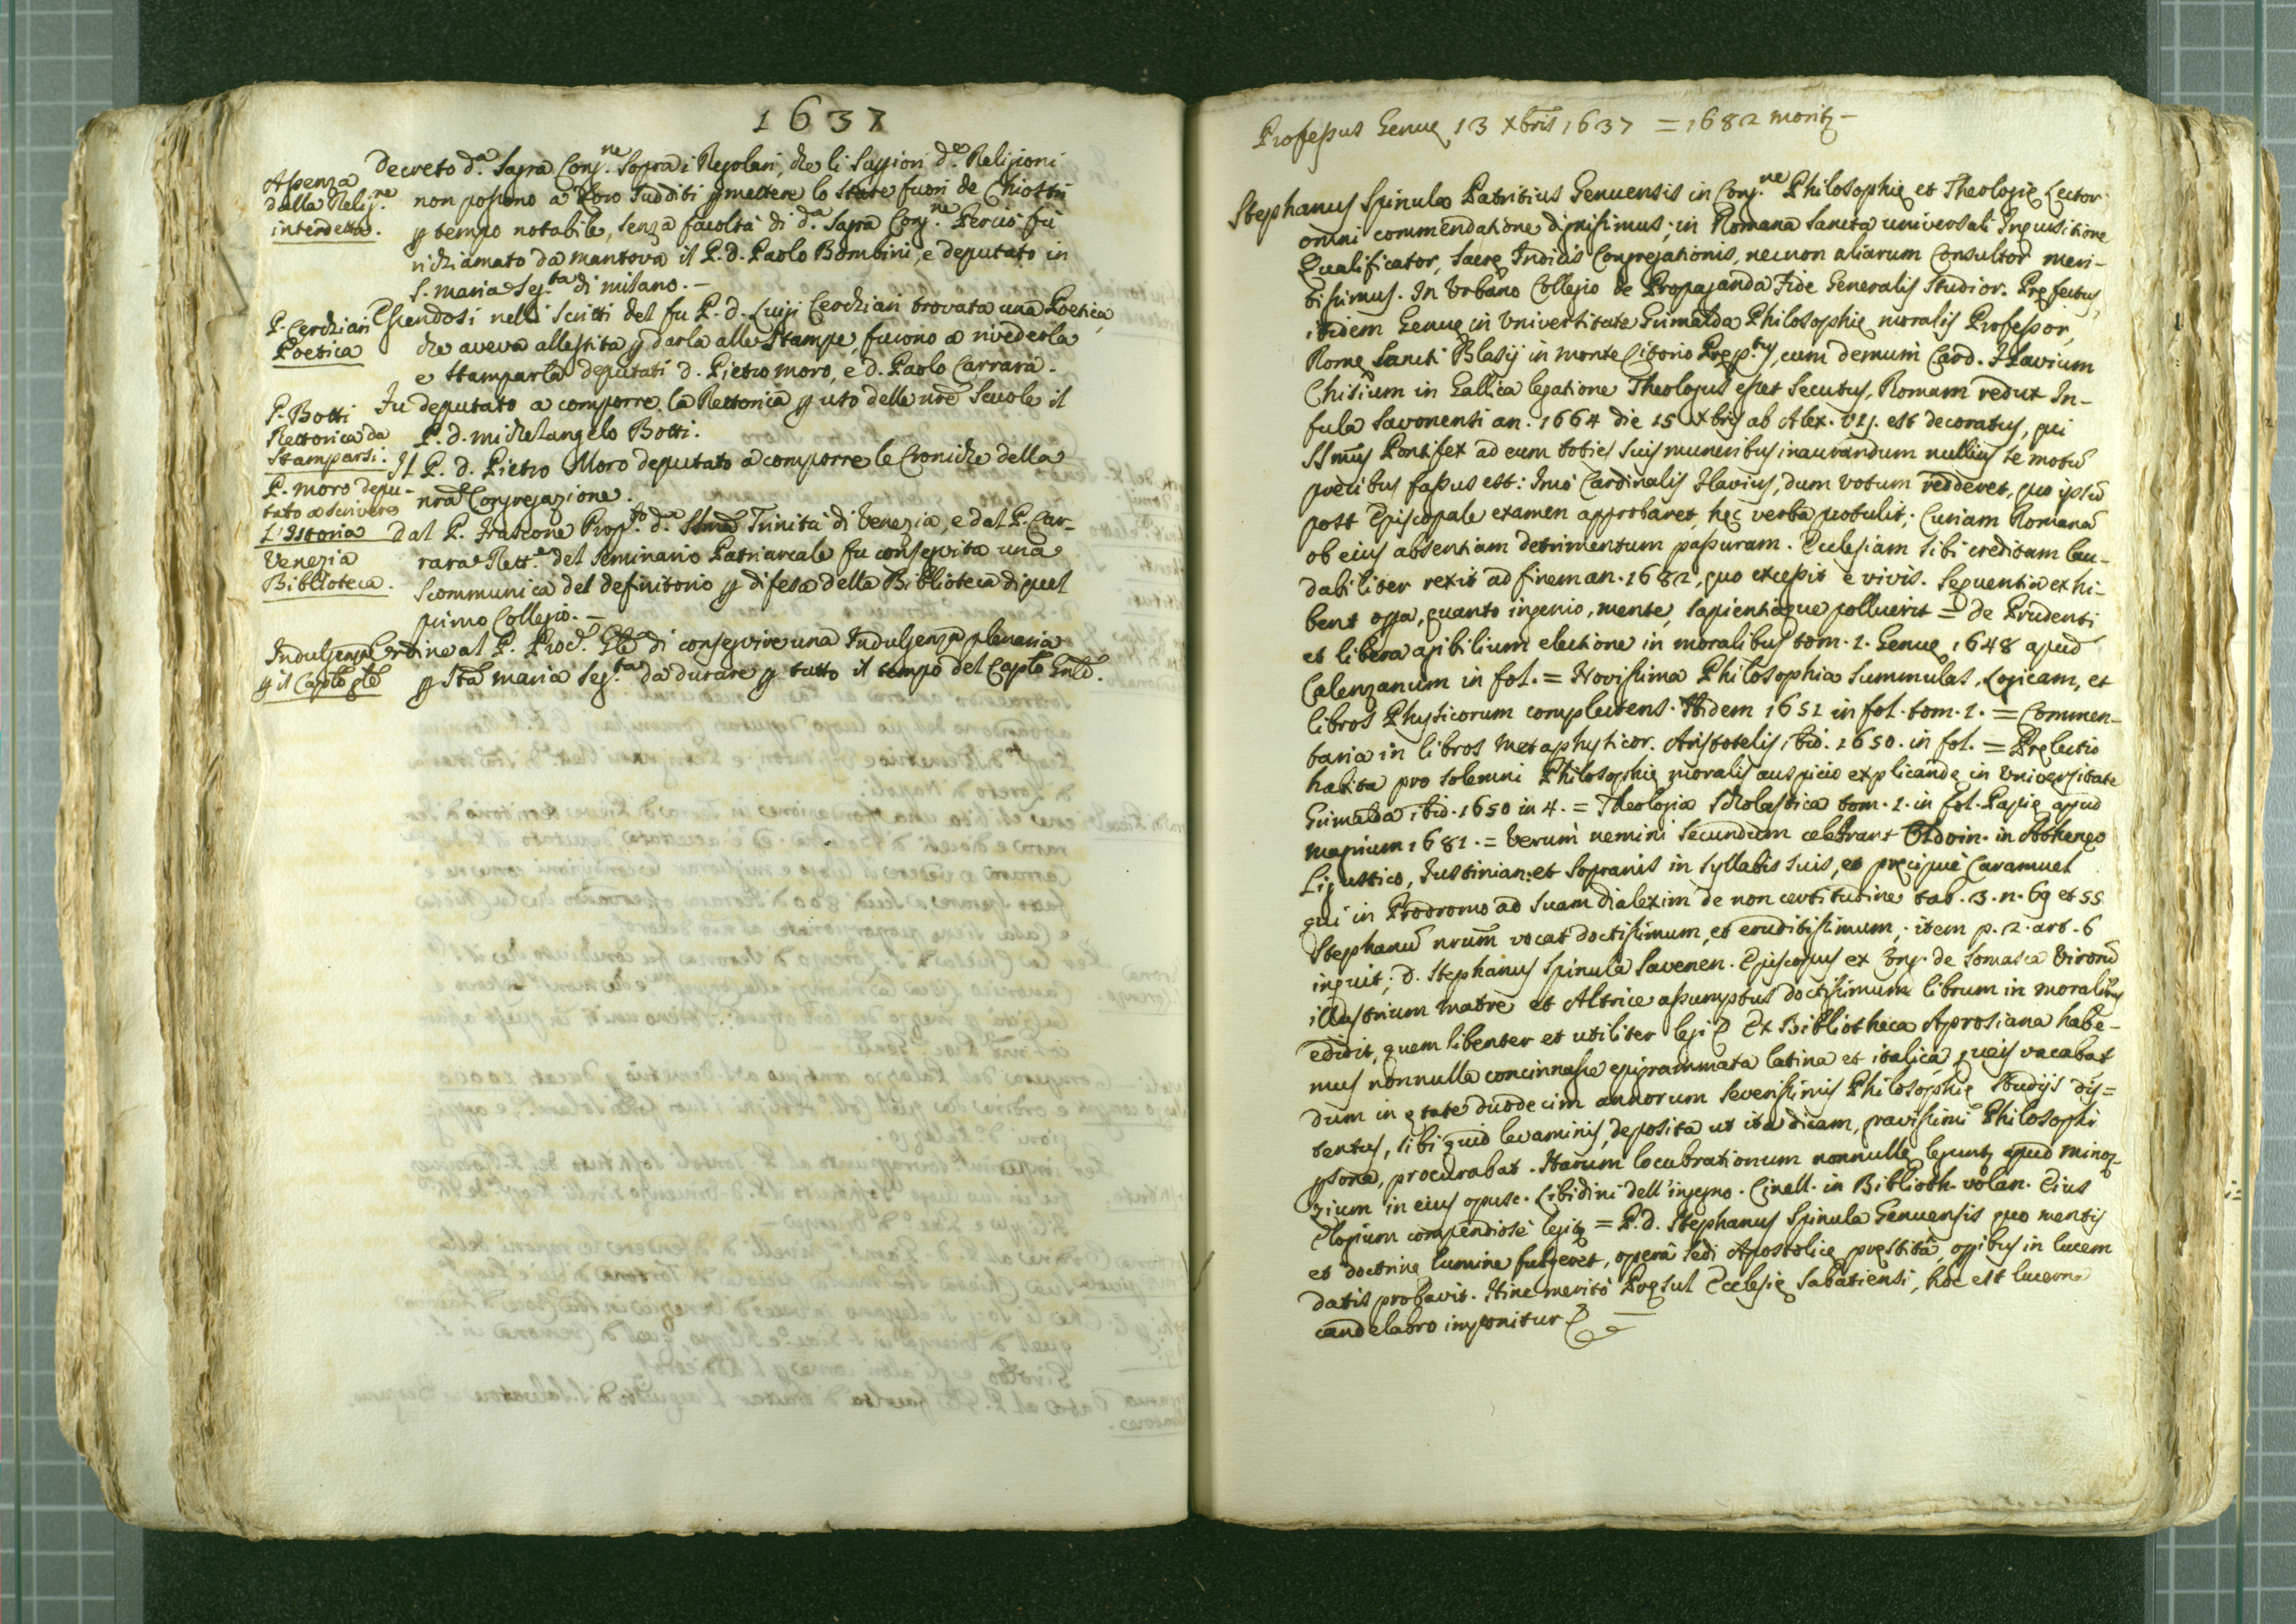 1637
Assenza
dalla Relig.ne
interdetta.
Decreto d.a Sagra Cong.ne Sopra i Regolari, che li Suggiori d.e Religioni
non possono a loro Sudditi pmettere lo Stare fuori de Chiostri
p tempo notabile, senza facoltà di d.a Sagra Cong.ne Perciò fù
richiamato da Mantova il P. D. Paolo Bombini, e deputato in
S. Maria Seg.ta di Milano. –
P. Cerchiari
Poetica
Essendosi nelli Scritti del fu P. D. Luigi Cerchiari trovata una Poetica,
che aveva allestita p darla alle Stampe, furono a rivederla
e Stamparla deputati D. Pietro Moro, e D. Paolo Carrara.
P. Botti
Rettorica da
Stamparsi.
Fu deputato a comporre la Rettorica p uso delle nre Scuole il
P. D. Michelangelo Botti.
P. Moro depu-
tato a scrivere
l'Istoria
Il P. D. Pietro Moro deputato a comporre le Croniche della
nra Congregazione.
Venezia
Biblioteca.
Dal P. Frascone Prop.to d.a SSma Trinità di Venezia, e dal P. Car-
rara Rett.e del Seminario Patriarcale fu conseguita una
Scommunica del definitorio p difesa della Biblioteca di quel
primo Collegio. –
Indulgenza
p il Caplo gle
Ordine al P. Proc.r Gle di conseguire una Indulgenza plenaria
p Sta Maria Seg.ta da durare p tutto il tempo del Caplo Gnle.
Professus Genuę 13 Xbris 1637 = 1682 morit –
Stephanus Spinula Patritius Genuensis in Cong.ne Philosophię et Theologię Lector
omni commendatione dignissimus; in Romana Sancta universali Inquisitione
Qualificator, Sacrę Indicis Congregationis, necnon aliarum Consultor meri-
tissimus. In Urbano Collegio de Propaganda Fide Generalis Studior. Pręfectus,
itidem Genuę in Universitate Grimalda Philosophię moralis Professor,
Romę Sancti Blasij in monte Citorio Pręp.tus, cum demum Card. Flavium
Chisium in Gallica legatione Theologus esset Secutus, Romam redux In-
fula Savonensi an. 1664 die 15 Xbris ab Alex. VIJ. est decoratus, qui
SSmus Pontifex ad eum toties suis muneribus inaurandum nullius se motū
precibus fassus est: Imò Cardinalis Flavius, dum votum redderet, quo ipsū
post Episcopale examen approbaret, hęc verba protulit; Curiam Romanā
ob eius absentiam detrimentum passuram. Ecclesiam sibi creditam lau-
dabiliter rexit ad finem an. 1682, quo excessit è vivis. Sequentia exhi-
bent opa, quanto ingenio, mente, sapientiaque polluerit = De Prudenti
et libera agibilium electione in moralibus tom. 1. Genuę 1648 apud
Calenzanum in fol. = Novissima Philosophia Summulas, Logicam, et
libros Physicorum complectens. Itidem 1651 in fol. tom. 1. = Commen-
taria in libros Metaphysicor. Aristotelis, ibid. 1650. in fol. = Pręlectio
habita pro solemni Philosophię moralis auspicio explicandę in Universitate
Grimalda ibid. 1650 in 4. = Theologia Scholastica tom. 1. in fol. Papię apud
Magrium 1681. = Verum nemini secundum celebrant Oldoin. in Atheneo
Ligustico, Justinian: et Sopranis in Syllabis suis, et pręcipuè Caramuel
qui in Prodromo ad suam dialexim de non certitudine tab. 3. n. 69 et 55
Stephanū nrum vocat doctissimum, et eruditissimum; item p. 2. art. 6
inquit; D. Stephanus Spinula Savonen. Episcopus ex Cong. de Somasca Virorū
illustrium matre et Altrice assumptus doctissimum librum in moralibus
edidit, quem libenter et utiliter legi Ex Bibliotheca Aprosiana habe-
mus nonnulla concinnasse epigrammata latina et italica, queis vacabat
dum in ętate duodecim annorum severissimis Philosophię Studijs dis=
tentus, sibi quid levaminis, deposita ut ita dicam, gravissimi Philosophi
psona, procurabat. Harum locubrationum nonnullę legunt apud Minoz-
zium in eius opusc. Libidini dell'ingegno. Cinell. in Biblioth. volan. Eius
Elogium compendiosè legit = P. D. Stephanus Spinula Genuensis quo mentis
et doctrinę lumine fulgeret, operâ Sedi Apostolicę pręstitâ, opibus in lucem
datis probavit. Hinc meritò Pręsul Ecclesię Sabatiensi, hoc est lucerna
candelabro imponitur =